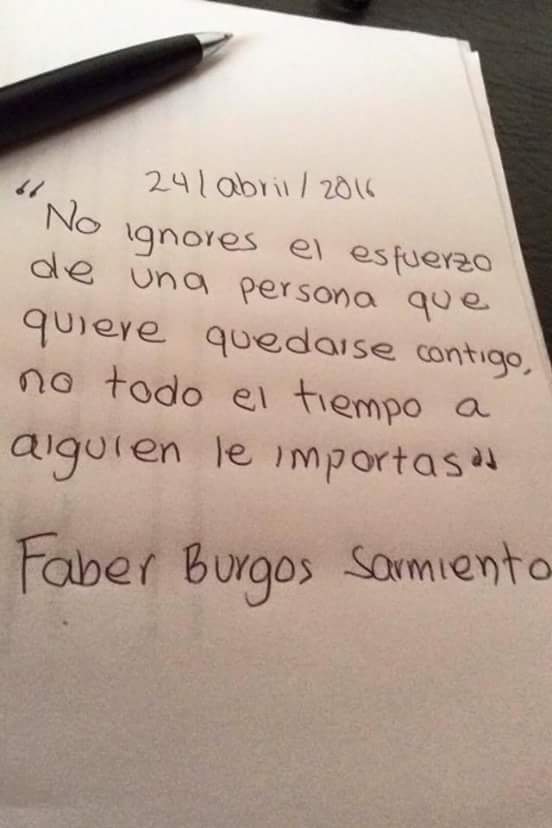 24/abril/2016
"No ignores el esfuerzo
de una persona que
quiere quedarse contigo,
no todo el tiempo a
alguien le importas"
Faber Burgos Sarmiento